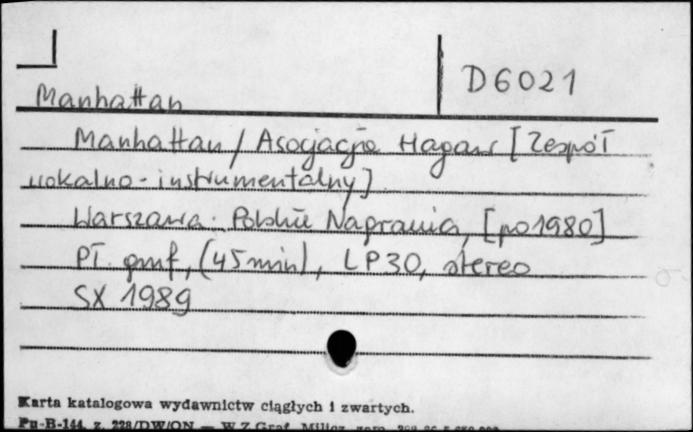 D6021
Manhattan
Manhattan / Asocjacja Hagaw [Zespół
wokalno-instrumentalny]
Warszawa: Polskie Nagrania, [po 1980]
Pł. gmf, (45 min), LP30, stereo
SX 1989
Karta katalogowa wydawnictw ciągłych i zwartych.
Pu-B-144, z. 228/DW/ON — W.Z.Graf. Milicz, zam.